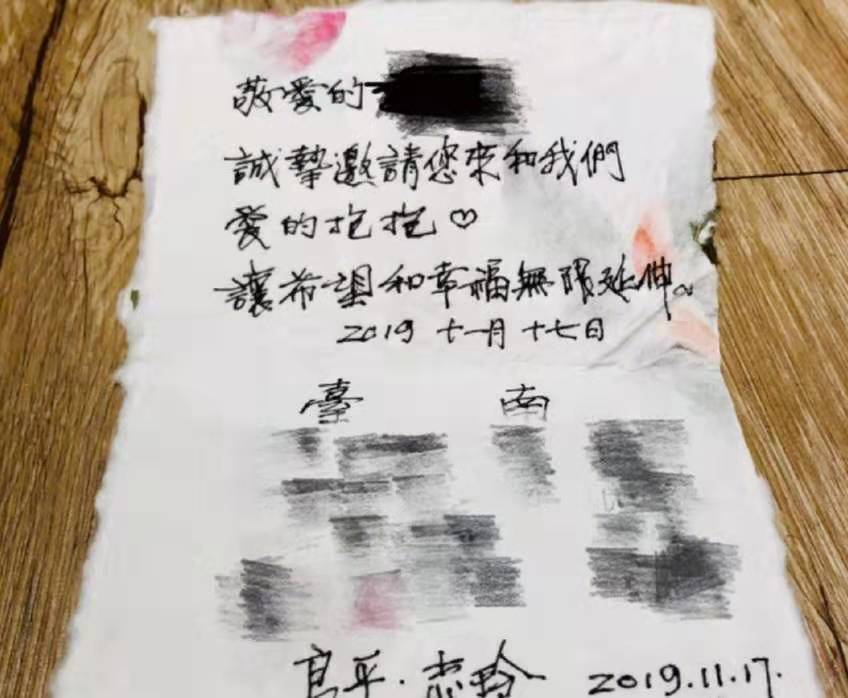 敬愛的
誠摯邀請您來和我們
愛的抱抱♡
讓希望和幸福無限延伸。
2019 十一月 十七日
臺 南
良平.志玲 2019.11.17.